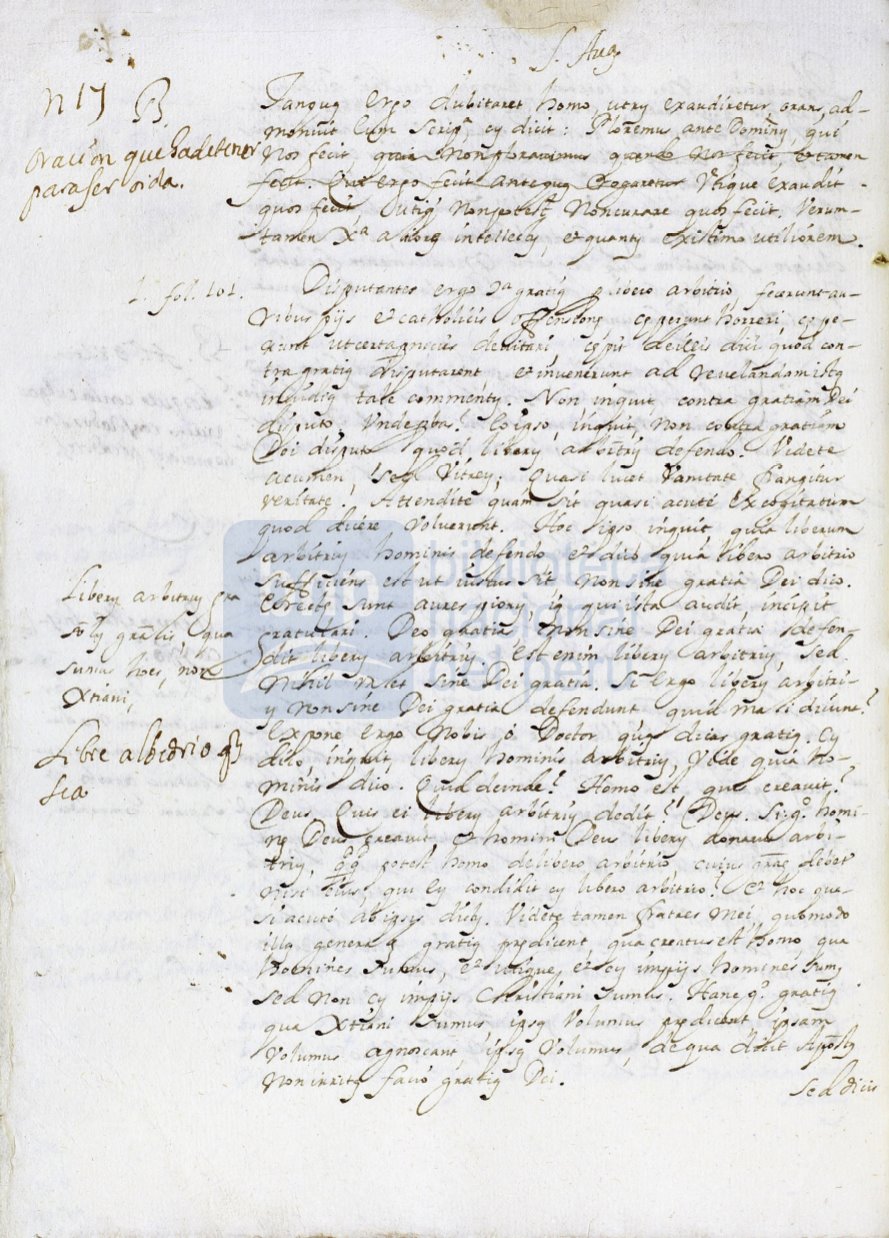 S. Aug
n 17 B
Oracion que hadetener
para ser oida.
Tanquã Ergo dubitaret homo, utrũ exaudiretur orans, ad-
monuit Eum Scrip.ª cũ dicit: Ploremus ante Dominũ, qui
Nos fecit, quia non ploravimus quando Nos fecit, et tamen
fecit. Qui Ergo fecit antequã Rogaretur Utique exaudit
quos fecit, Utiq Non potest Noncurare quos fecit. Verum-
tamen intellectũ, et quantũ existimo utiliorem.
L. fol. 101.
Disputantes ergo gratiã libero arbitrio, fecerunt au-
ribus pijs et catholicis offensionẽ ceperunt horreri, cepe-
runt ut certa pnicies devitari cepit de illis dici quod con-
tra gratiã disputarent et invenerunt ad revelandam istã
invidiã tale commentũ. Non inquit, contra gratiam Dei
disputo Unde? Eo ipso, inquit, non contra gratiam
Dei disputo quod liberũ arbitriũ defendo. Videte
acumen, sed Vitreũ; Quasi lucet Vanitate frangitur
veritate. Attendite quam sit quasi acutè excogitatum
quod dicere Voluerint. Hoc ipso, inquit quia liberum
arbitriũ hominis defendo et dico quia libero arbitrio
sufficiens est ut iustus sit non sine gratia Dei dico.
Erectę sunt aures piorũ, iã qui ista audit, incipit
gratulari. Deo gratia, non sine Dei gratia defen-
dit liberũ arbitriũ. Est enim liberũ arbitriũ, sed
Nihil valet sine Dei gratia. Si ergo liberũ arbitri-
ũ non sine Dei gratia defendunt quid mali dicunt?
Expone ergo Nobis ó Doctor quã dicas gratiã. Cũ
dico, inquit liberũ hominis arbitriũ, Vide quia ho-
minis dico. Quid deinde? Homo est, quis creavit?
Deus. Quis ei liberũ arbitriũ dedit? Deus. Si gº homi-
nẽ Deus creavit, et homini Deus liberũ donavit arbi-
triũ, qdqd potest homo de libero arbitrio, cuius grãę debet
nisi eius, qui eũ condidit cũ libero arbitrio? Et hoc qua-
si acutè ab ipsis dictũ. Videte tamen fratres mei, quomodo
illã generalẽ gratiã predicent, qua creatus est homo, qua
homines sumus, et utique, et cũ impijs homines sumus,
sed Non cũ impijs Christiani sumus. Hanc gº gratiã
qua Xtiani sumus ipsã Volumus predicent ipsam
volumus agnoscant, ipsã Volumus, de qua dicit Apostolus
Non irritã facio gratiã Dei.
Liberũ arbitriũ gra
solũ gralis qua
sumus hoes, non
Xtiani,
Libre albedrio q
sea
Sed dicis